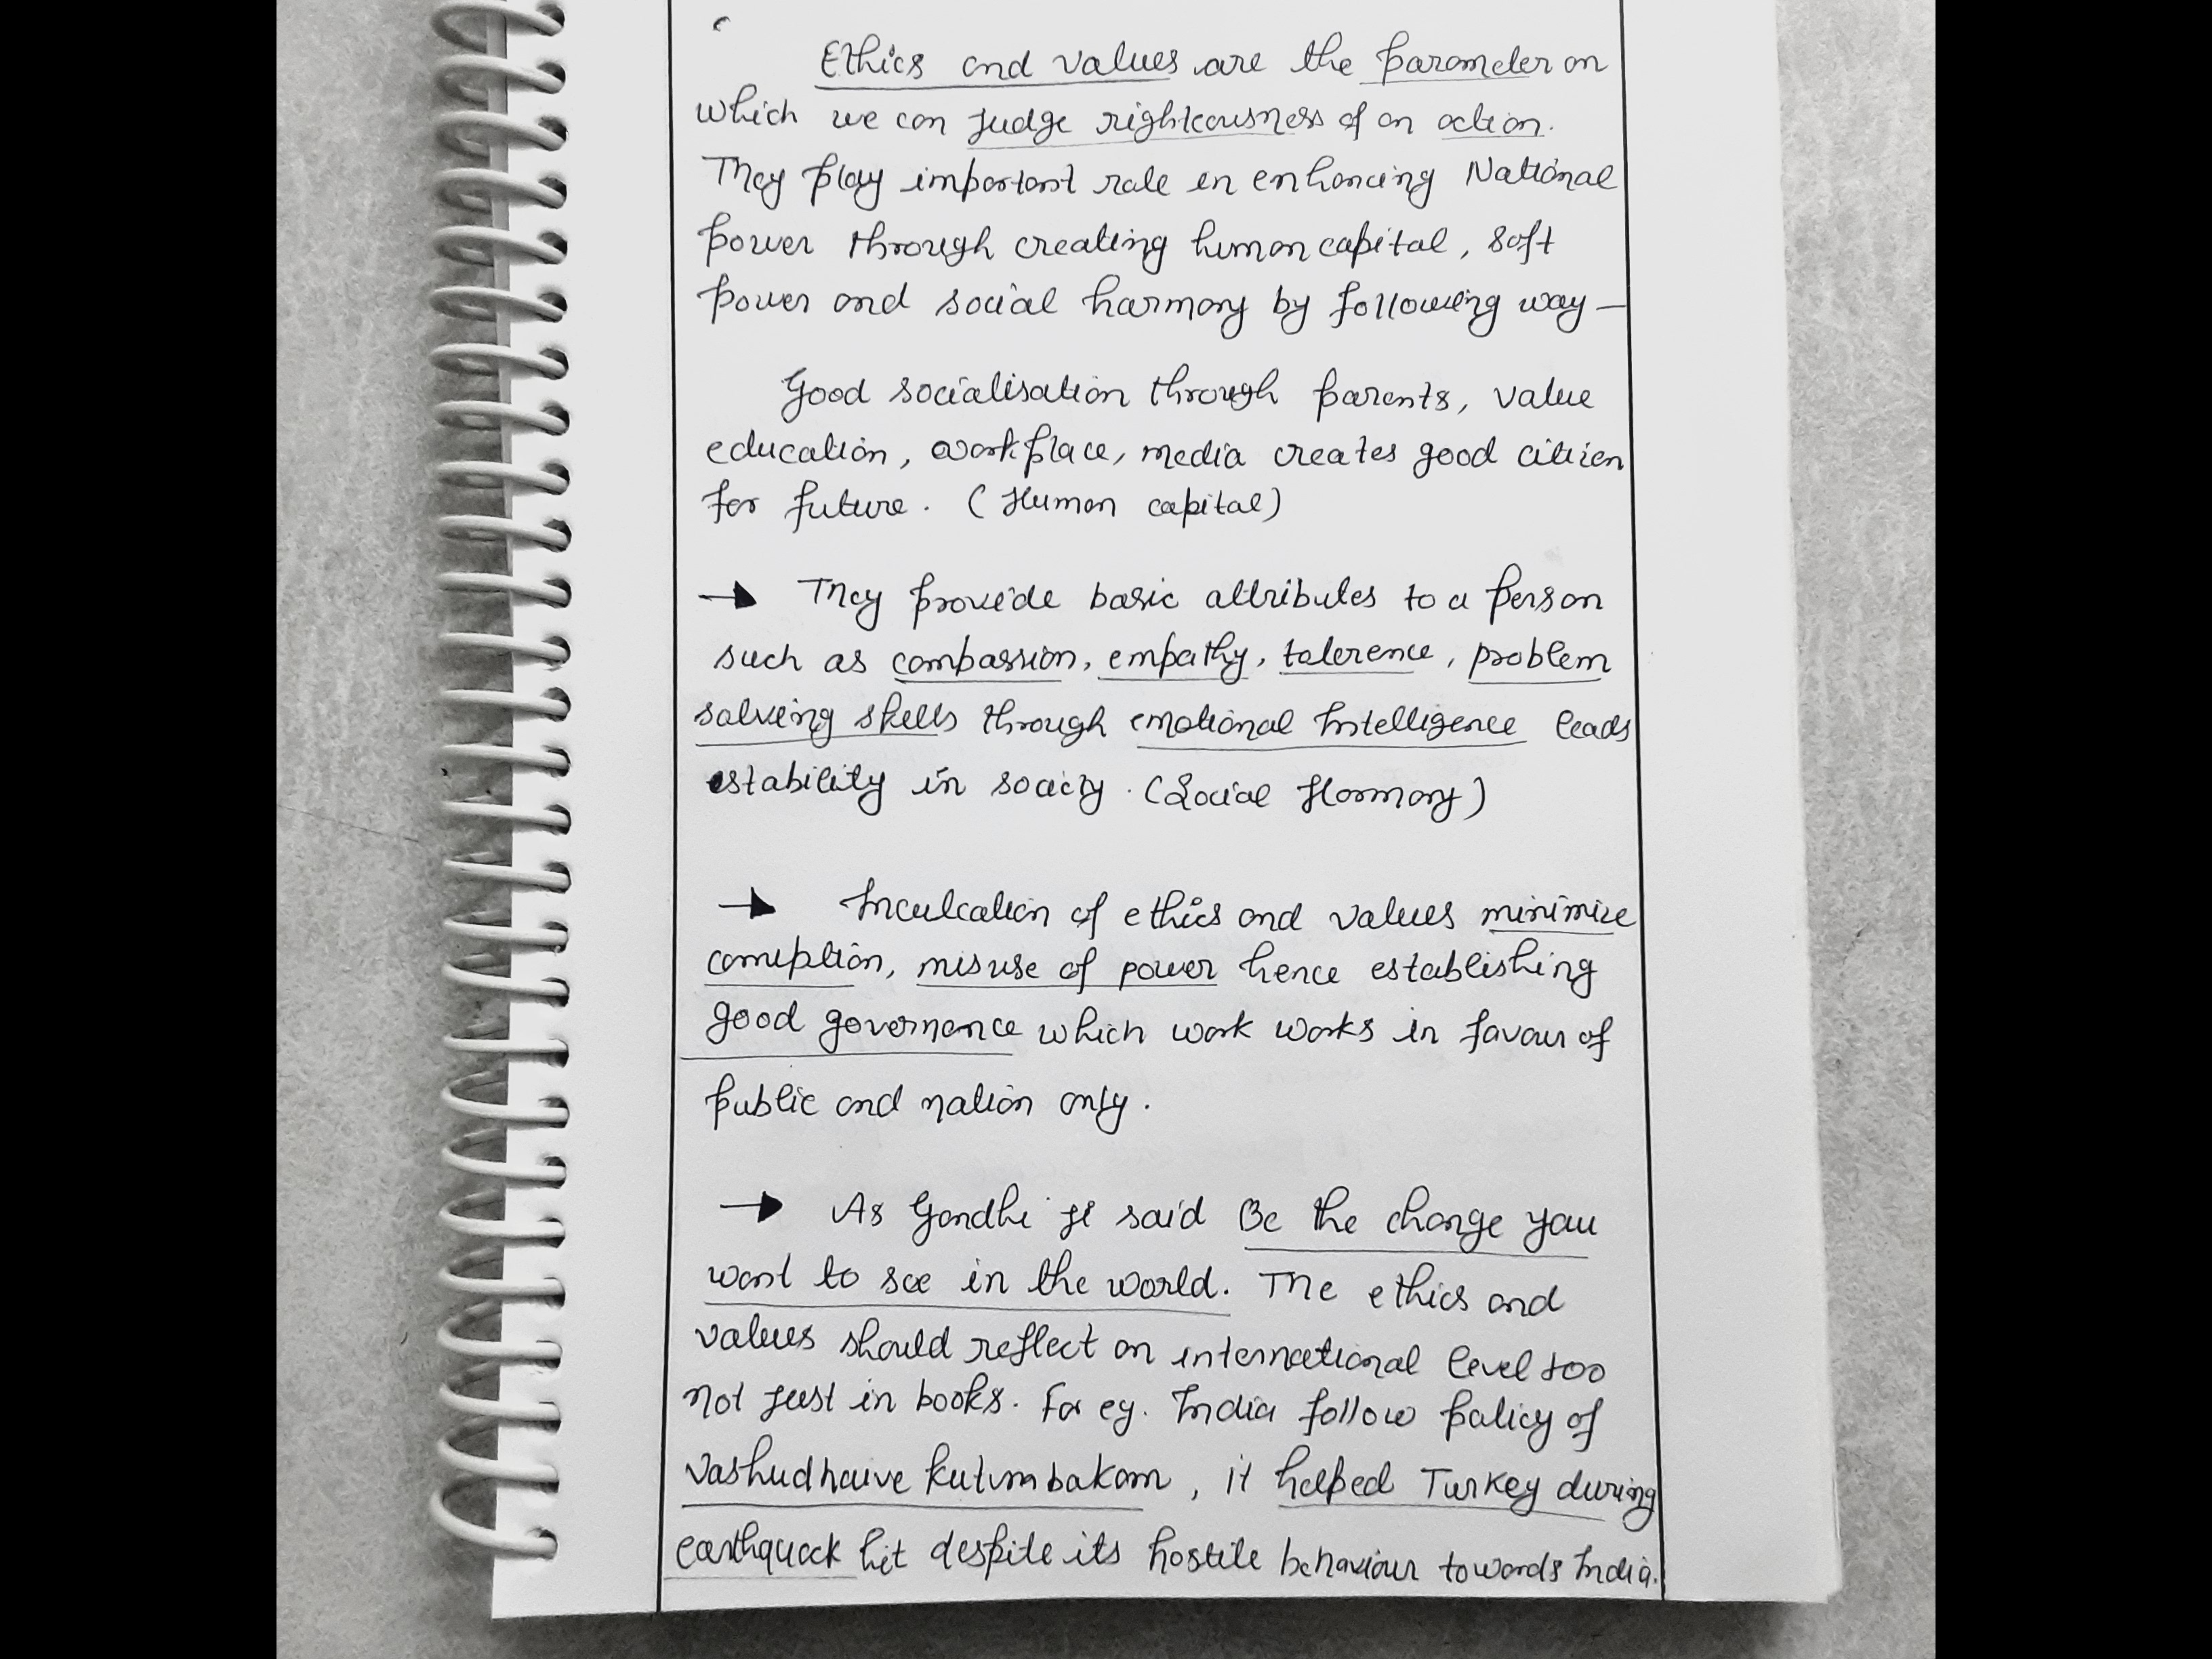 Ethics and values are the parameter on
which we can judge righteousness of an action.
They play important role in enhancing National
power through creating human capital, soft
power and social harmony by following way —
Good socialisation through parents, value
education, workplace, media creates good citizen
for future. (Human capital)
→ They provide basic attributes to a person
such as compassion, empathy, tolerence, problem
solving skills through emotional Intelligence leads
stability in society. (Social Harmony)
→ Inculcation of ethics and values minimize
corruption, misuse of power hence establishing
good governence which work works in favour of
public and nation only.
→ As Gandhi ji said Be the change you
want to see in the world. The ethics and
values should reflect on international level too
not just in books. For eg. India follow policy of
vashudhaive kutumbakam, it helped Turkey during
earthquack hit despite its hostile behaviour towards India.